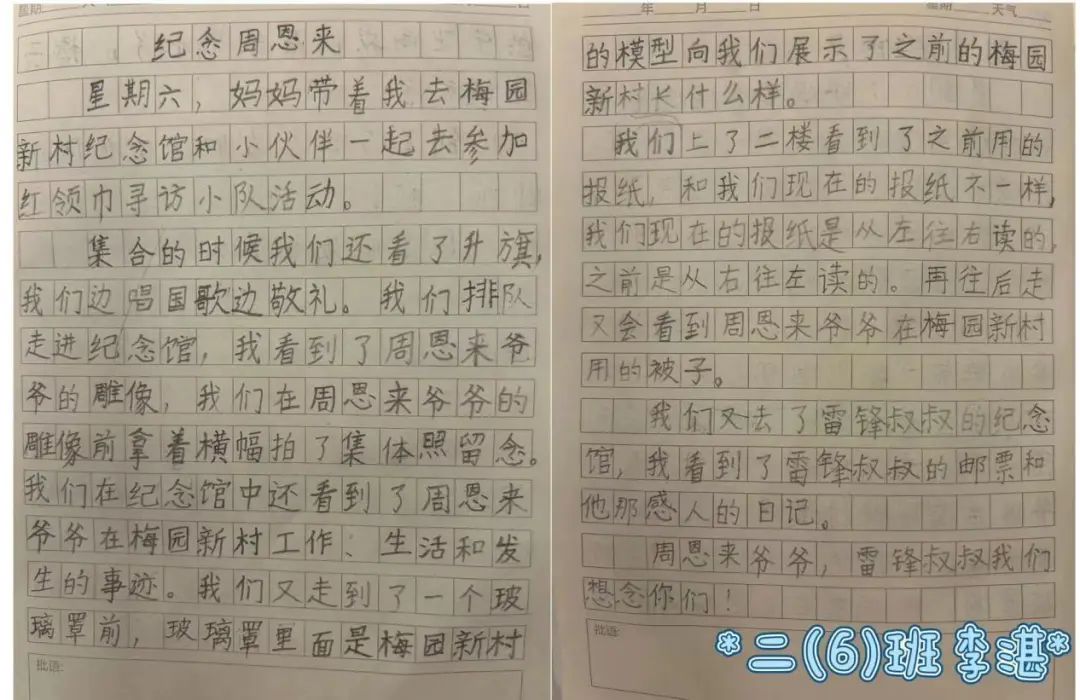 纪念周恩来
星期六，妈妈带着我去梅园
新村纪念馆和小伙伴一起去参加
红领巾寻访小队活动。
集合的时候我们还看了升旗，
我们边唱国歌边敬礼。我们排队
走进纪念馆，我看到了周恩来爷
爷的雕像，我们在周恩来爷爷的
雕像前拿着横幅拍了集体照留念。
我们在纪念馆中还看到了周恩来
爷爷在梅园新村工作、生活和发
生的事迹。我们又走到了一个玻
璃罩前，玻璃罩里面是梅园新村
批语:
年 月 日 星期 天气
的模型向我们展示了之前的梅园
新村长什么样。
我们上了二楼看到了之前用的
报纸，和我们现在的报纸不一样，
我们现在的报纸是从左往右读的，
之前是从右往左读的。再往后走
又会看到周恩来爷爷在梅园新村
用的被子。
我们又去了雷锋叔叔的纪念
馆，我看到了雷锋叔叔的邮票和
他那感人的日记。
周恩来爷爷，雷锋叔叔我们
想念你们！
批语:
*二(6)班 李湛*